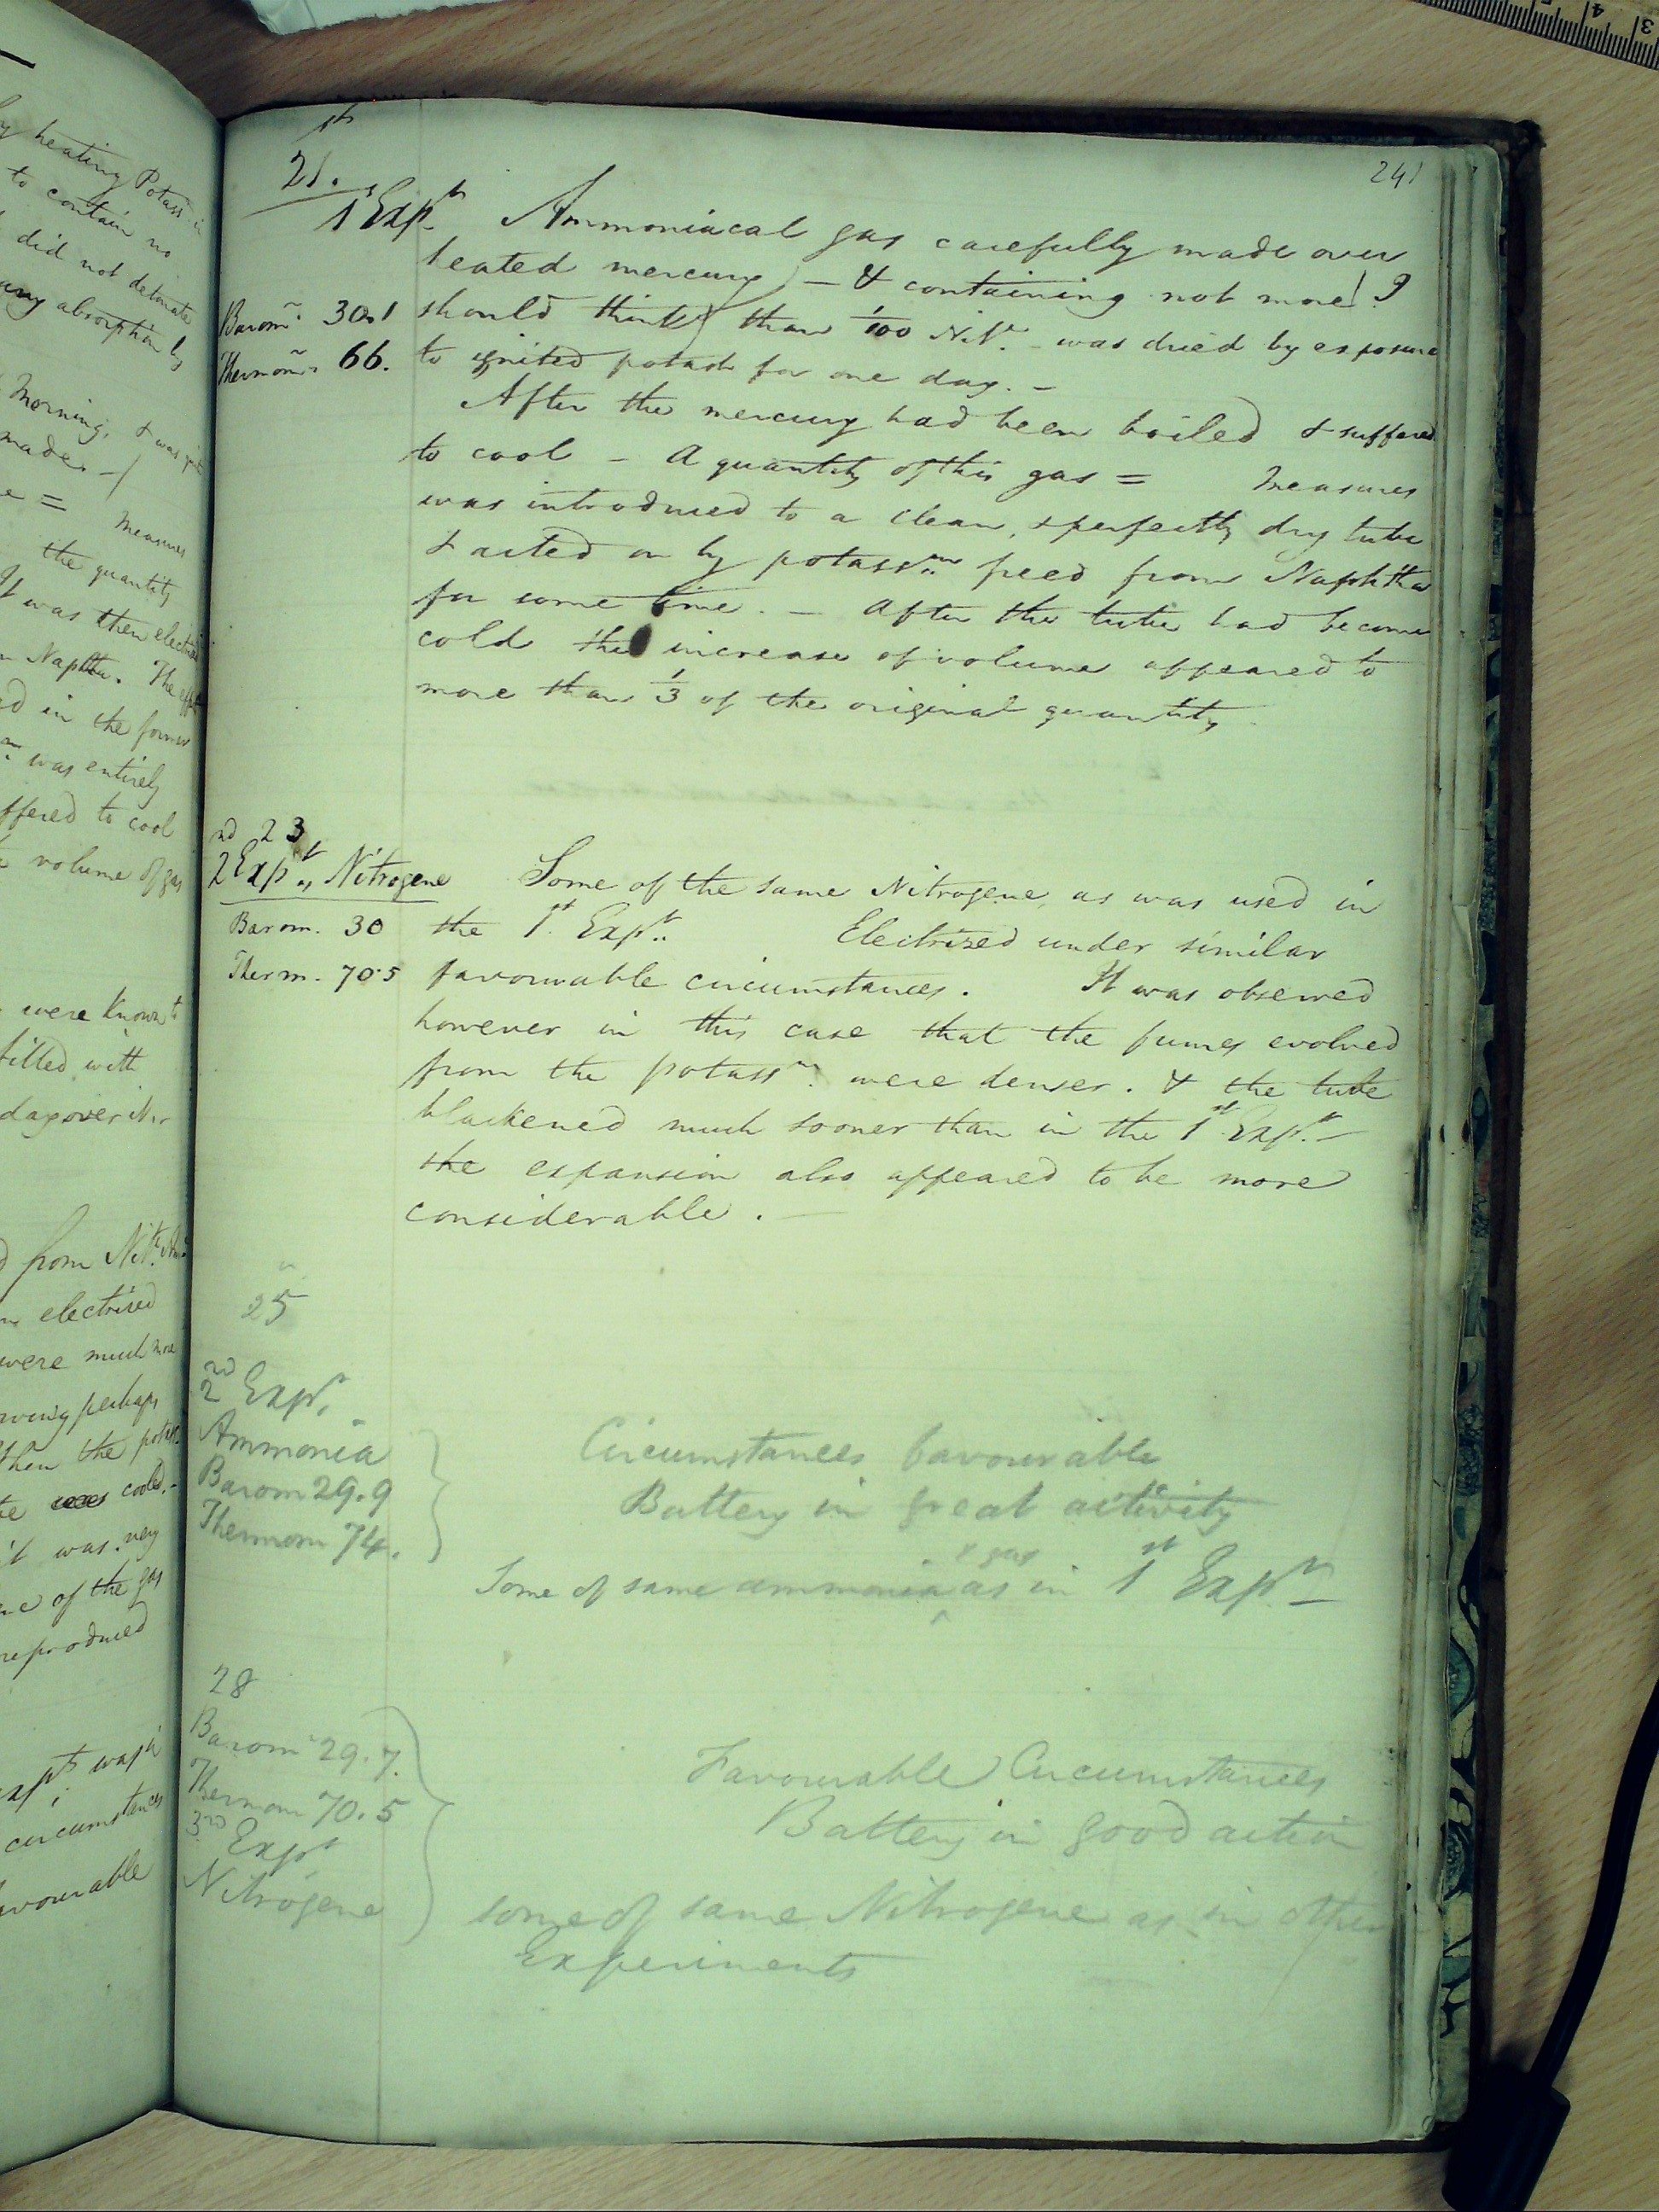 y heating Potass in
to contain no
did not detonate
any absorption by
Morning, & was
made - /
e = measures
the quantity
It was then electrised
in Naptha. The
d in the former
was entirely
uffered to cool
volume of gas
were known to
filled with
day over
d from Nit.
electrised
were much more
owing perhaps
then the potass
the cooled.-
it was very
me of the gas
reproduced
expt was
circumstances
favourable
241
st
21.
1 Expt. Ammoniacal gas carefully made over
heated mercury - & containing not more (I
Barom. 30.1 should think) than 1/100 Nit. was dried by exposure
Thermom. 66. to ignited potash for one day. -
After the mercury had been boiled & suffered
to cool - A quantity of this gas = measures
was introduced to a clean, & perfectly dry tube
& acted on by potassm. freed from Naphtha
for some time. - After the tube had become
cold the increase of volume appeared to
more than 1/3 of the original quantity.
23
2nd Expt. Nitrogene Some of the same Nitrogene, as was used in
Barom. 30 the 1st. Expt. Electrised under similar
Therm. 70.5 favourable circumstances. It was observed
however in this case that the fumes evolved
from the potassm. were denser. & the tube
blackened much sooner than in the 1st Expt. -
the expansion also appeared to be more
considerable. -
25
2nd Expt.
Ammonia Circumstances favourable
Barom 29.9 Battery in great activity
Thermom 74.
& gas
Some of same ammonia as in 1st Expt. -
28
Barom 29.7. Favourable Circumstances
Thermom 70.5 Battery in good action
3rd Expt
Nitrogene some of same Nitrogene as in other
Experiments
5 4 3